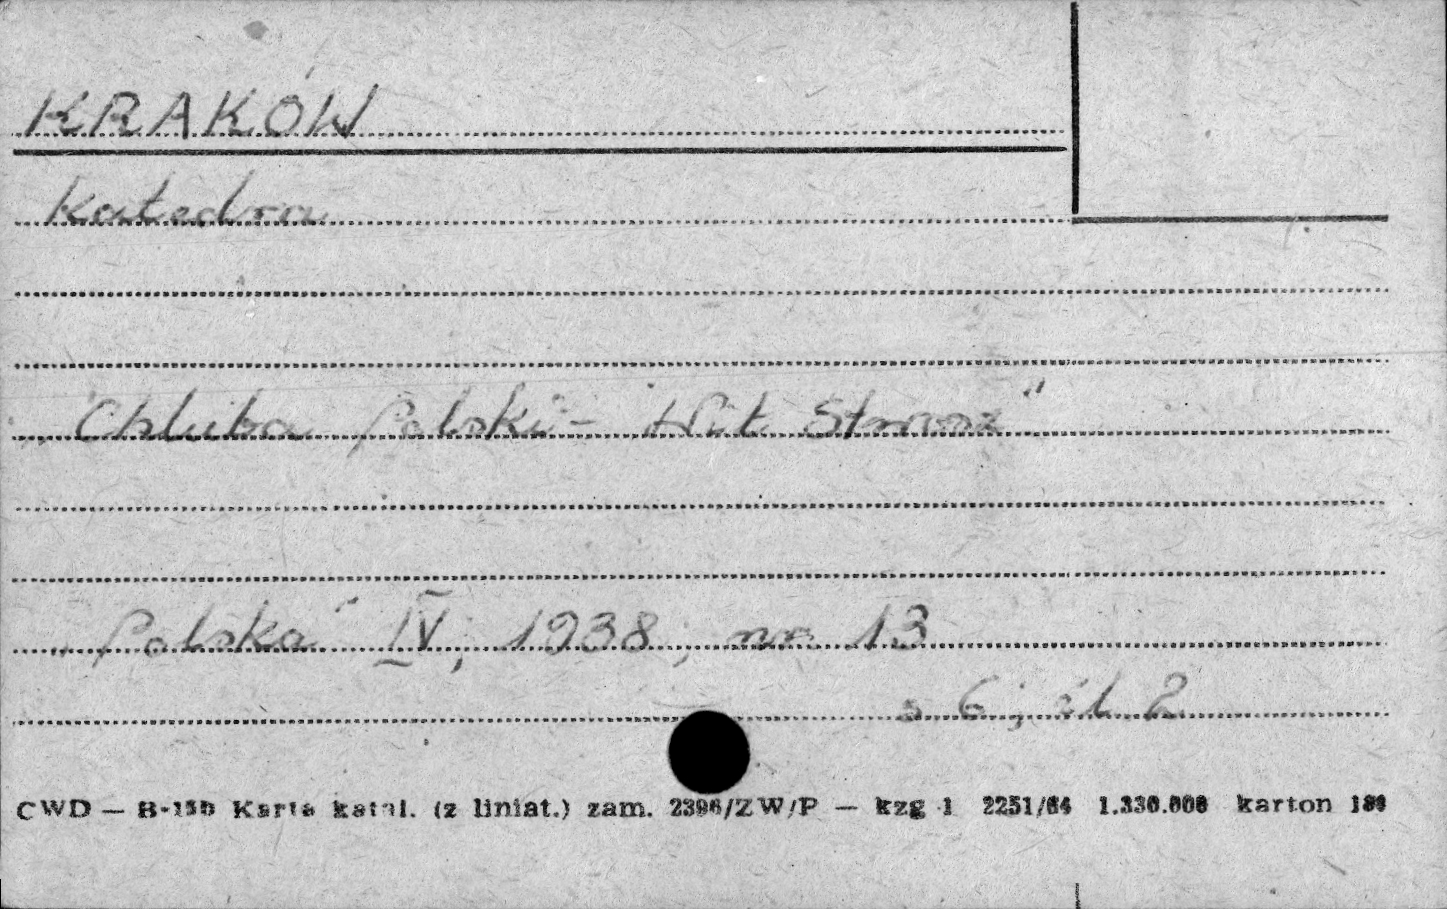 KRAKÓW
Katedra
„Chluba Polski - Wit Stwosz"
„Polska" IV, 1938, nr 13
s 6; il. 2
CWD — B-15b Karta katal. (z liniat.) zam. 2396/ZW/P — kzg 1 2251/64 1.330.000 karton 180